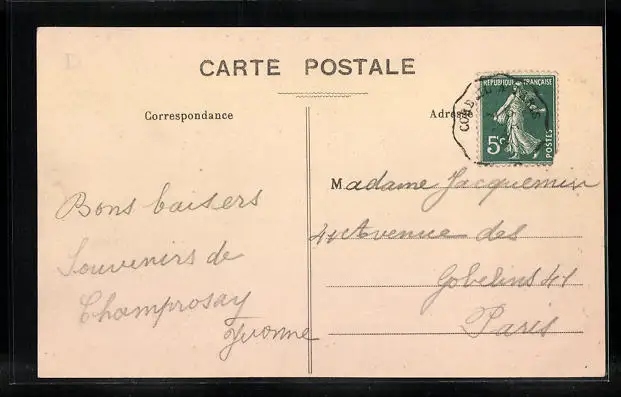 CARTE POSTALE
Correspondance
Adresse
REPUBLIQUE FRANÇAISE
5c
POSTES
Bons baisers
Souvenirs de
Champrosay
Yvonne
Madame Jacquemin
41 Avenue des
Gobelins 41
Paris